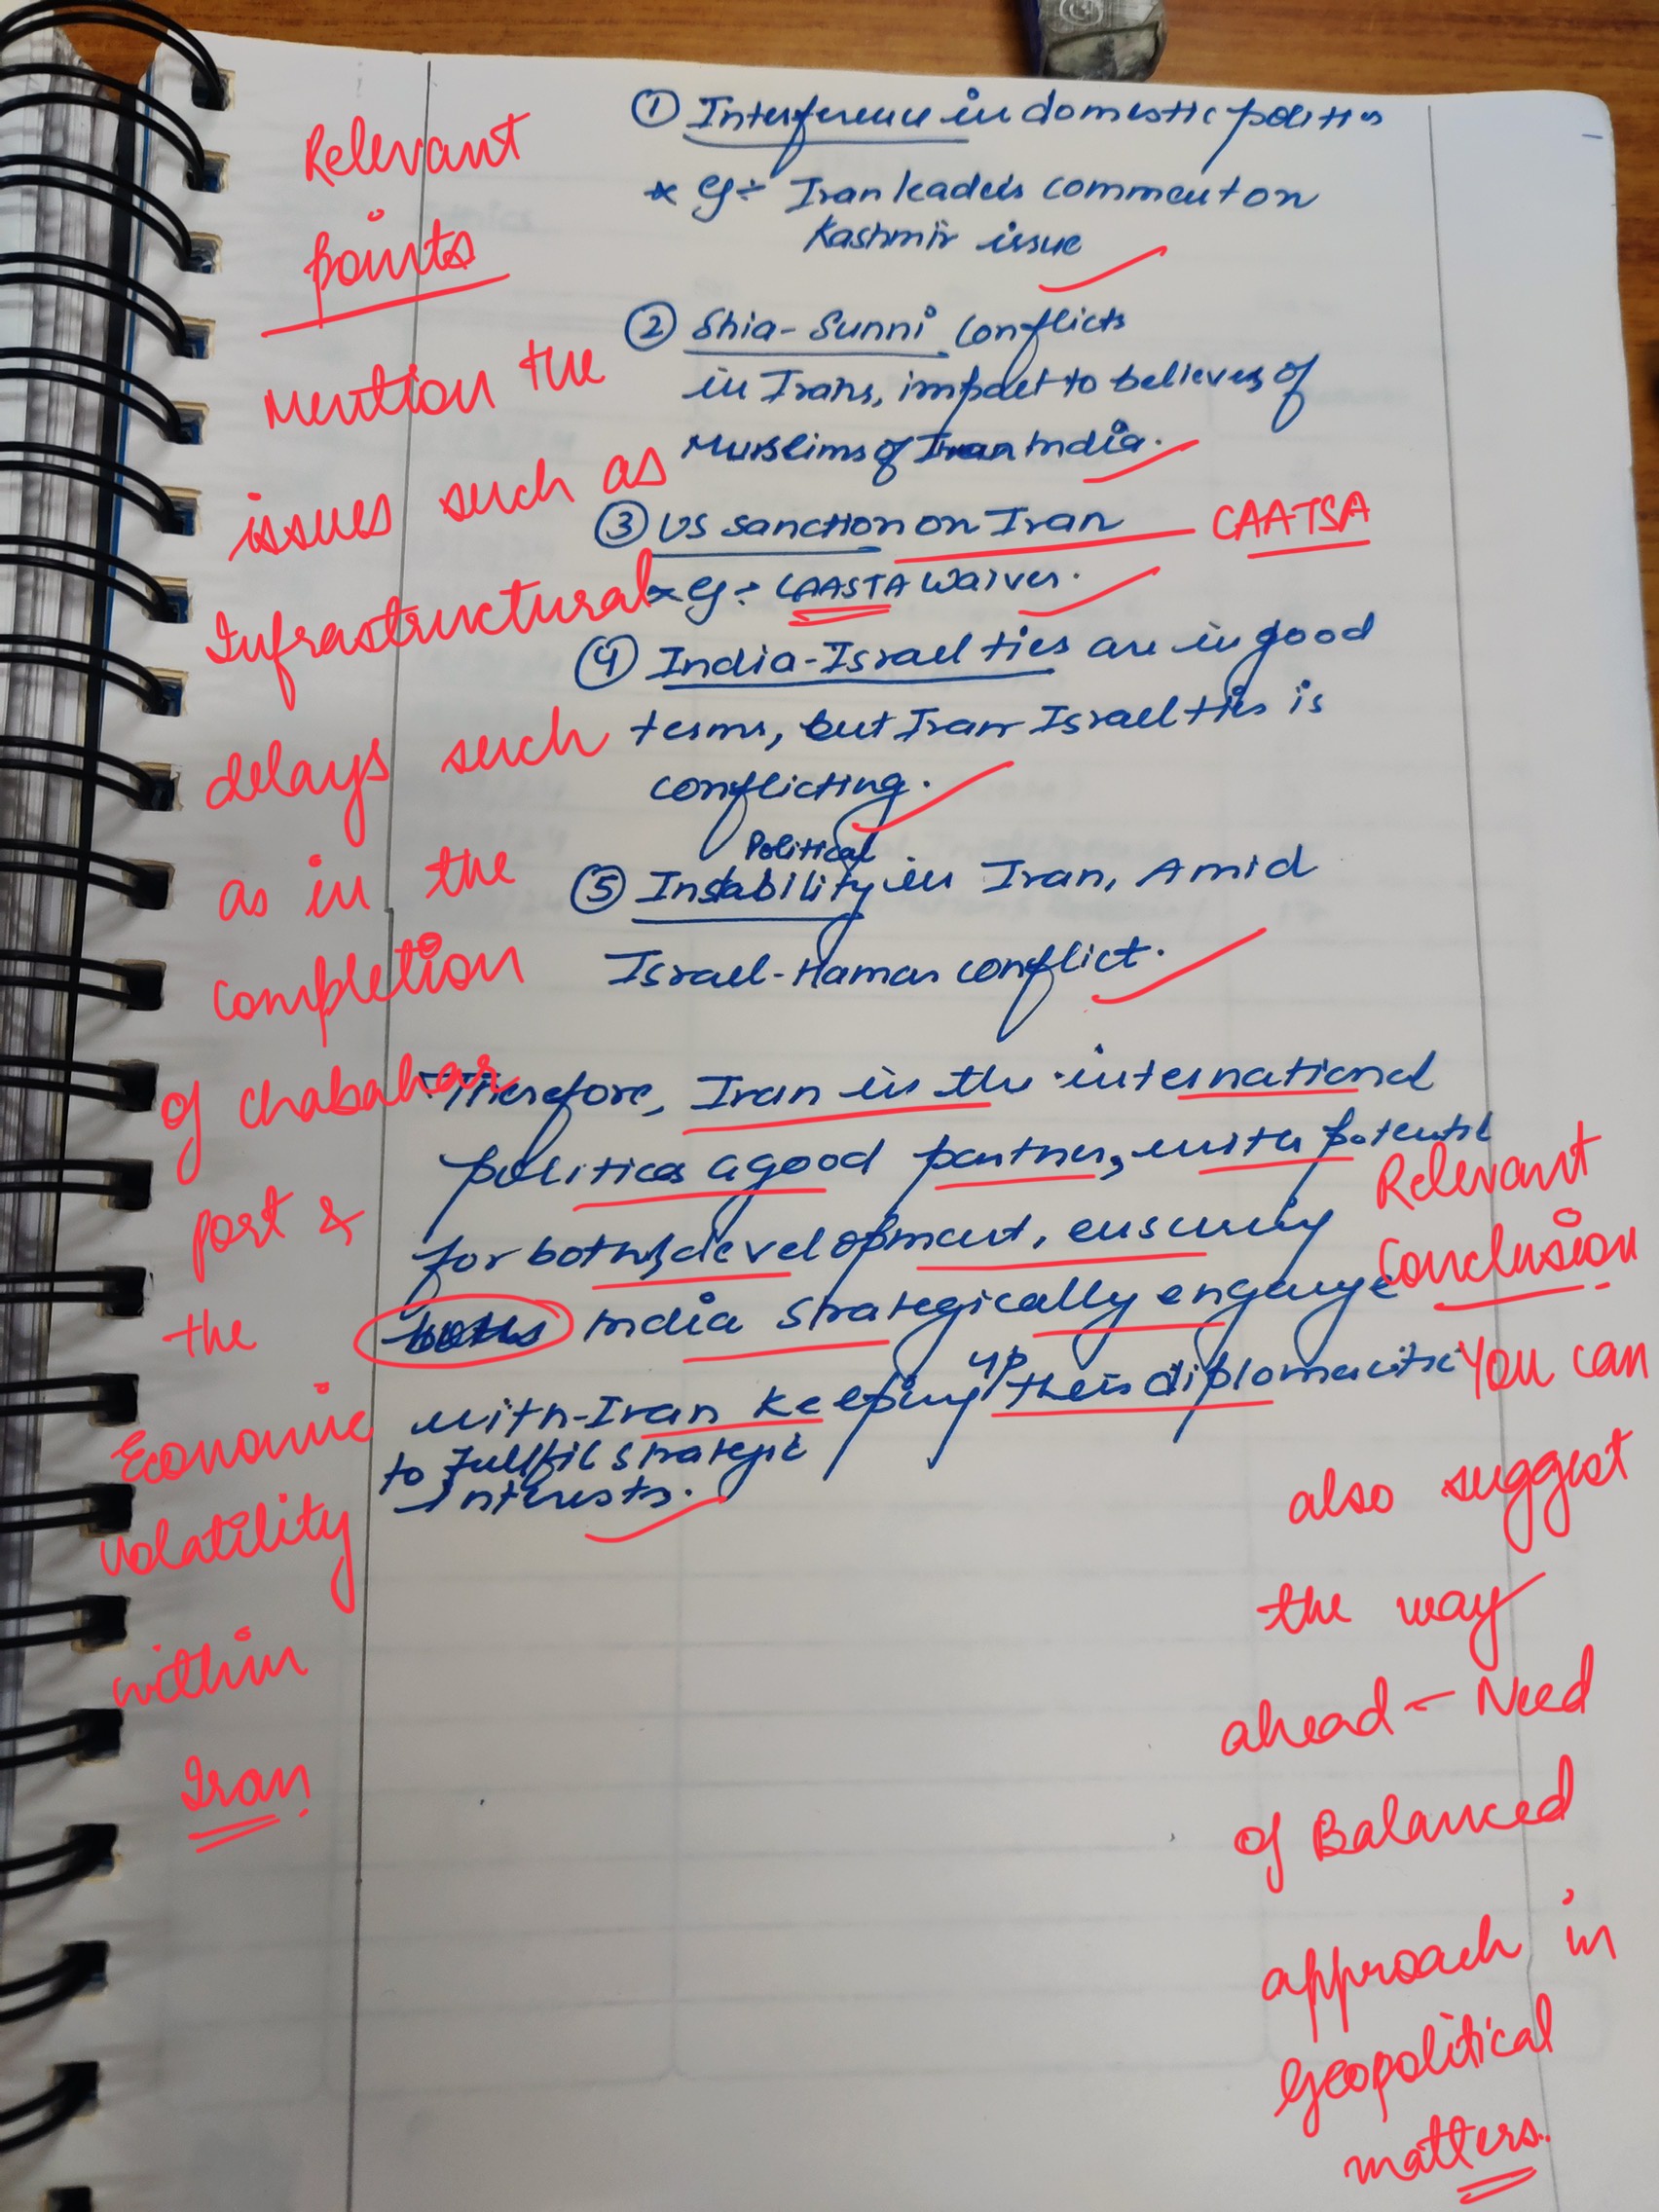 ① Interference in domestic politics
* eg:- Iran leaders comment on
Kashmir issue
② Shia-Sunni Conflicts
in Irans, impact to believes of
Muslims of Iran India.
③ US sanction on Iran
CAATSA
* eg:- CAASTA waiver.
④ India-Israel ties are in good
terms, but Iran Israel ties is
conflicting.
Political
⑤ Instability in Iran, Amid
Israel-Hamas conflict.
Therefore, Iran in the international
politics a good partner, with potential
for both, development, ensuring
India strategically engage
with Iran keeping up their diplomatic
to Fullfil strategic
Interests.
Relevant
points
Mention the
issues such as
Infrastructural
delays such
as in the
completion
of chabahar
port &
the
Economic
volatility
within
Iran.
Relevant
Conclusion.
You can
also suggest
the way
ahead - Need
of Balanced
approach in
Geopolitical
matters.